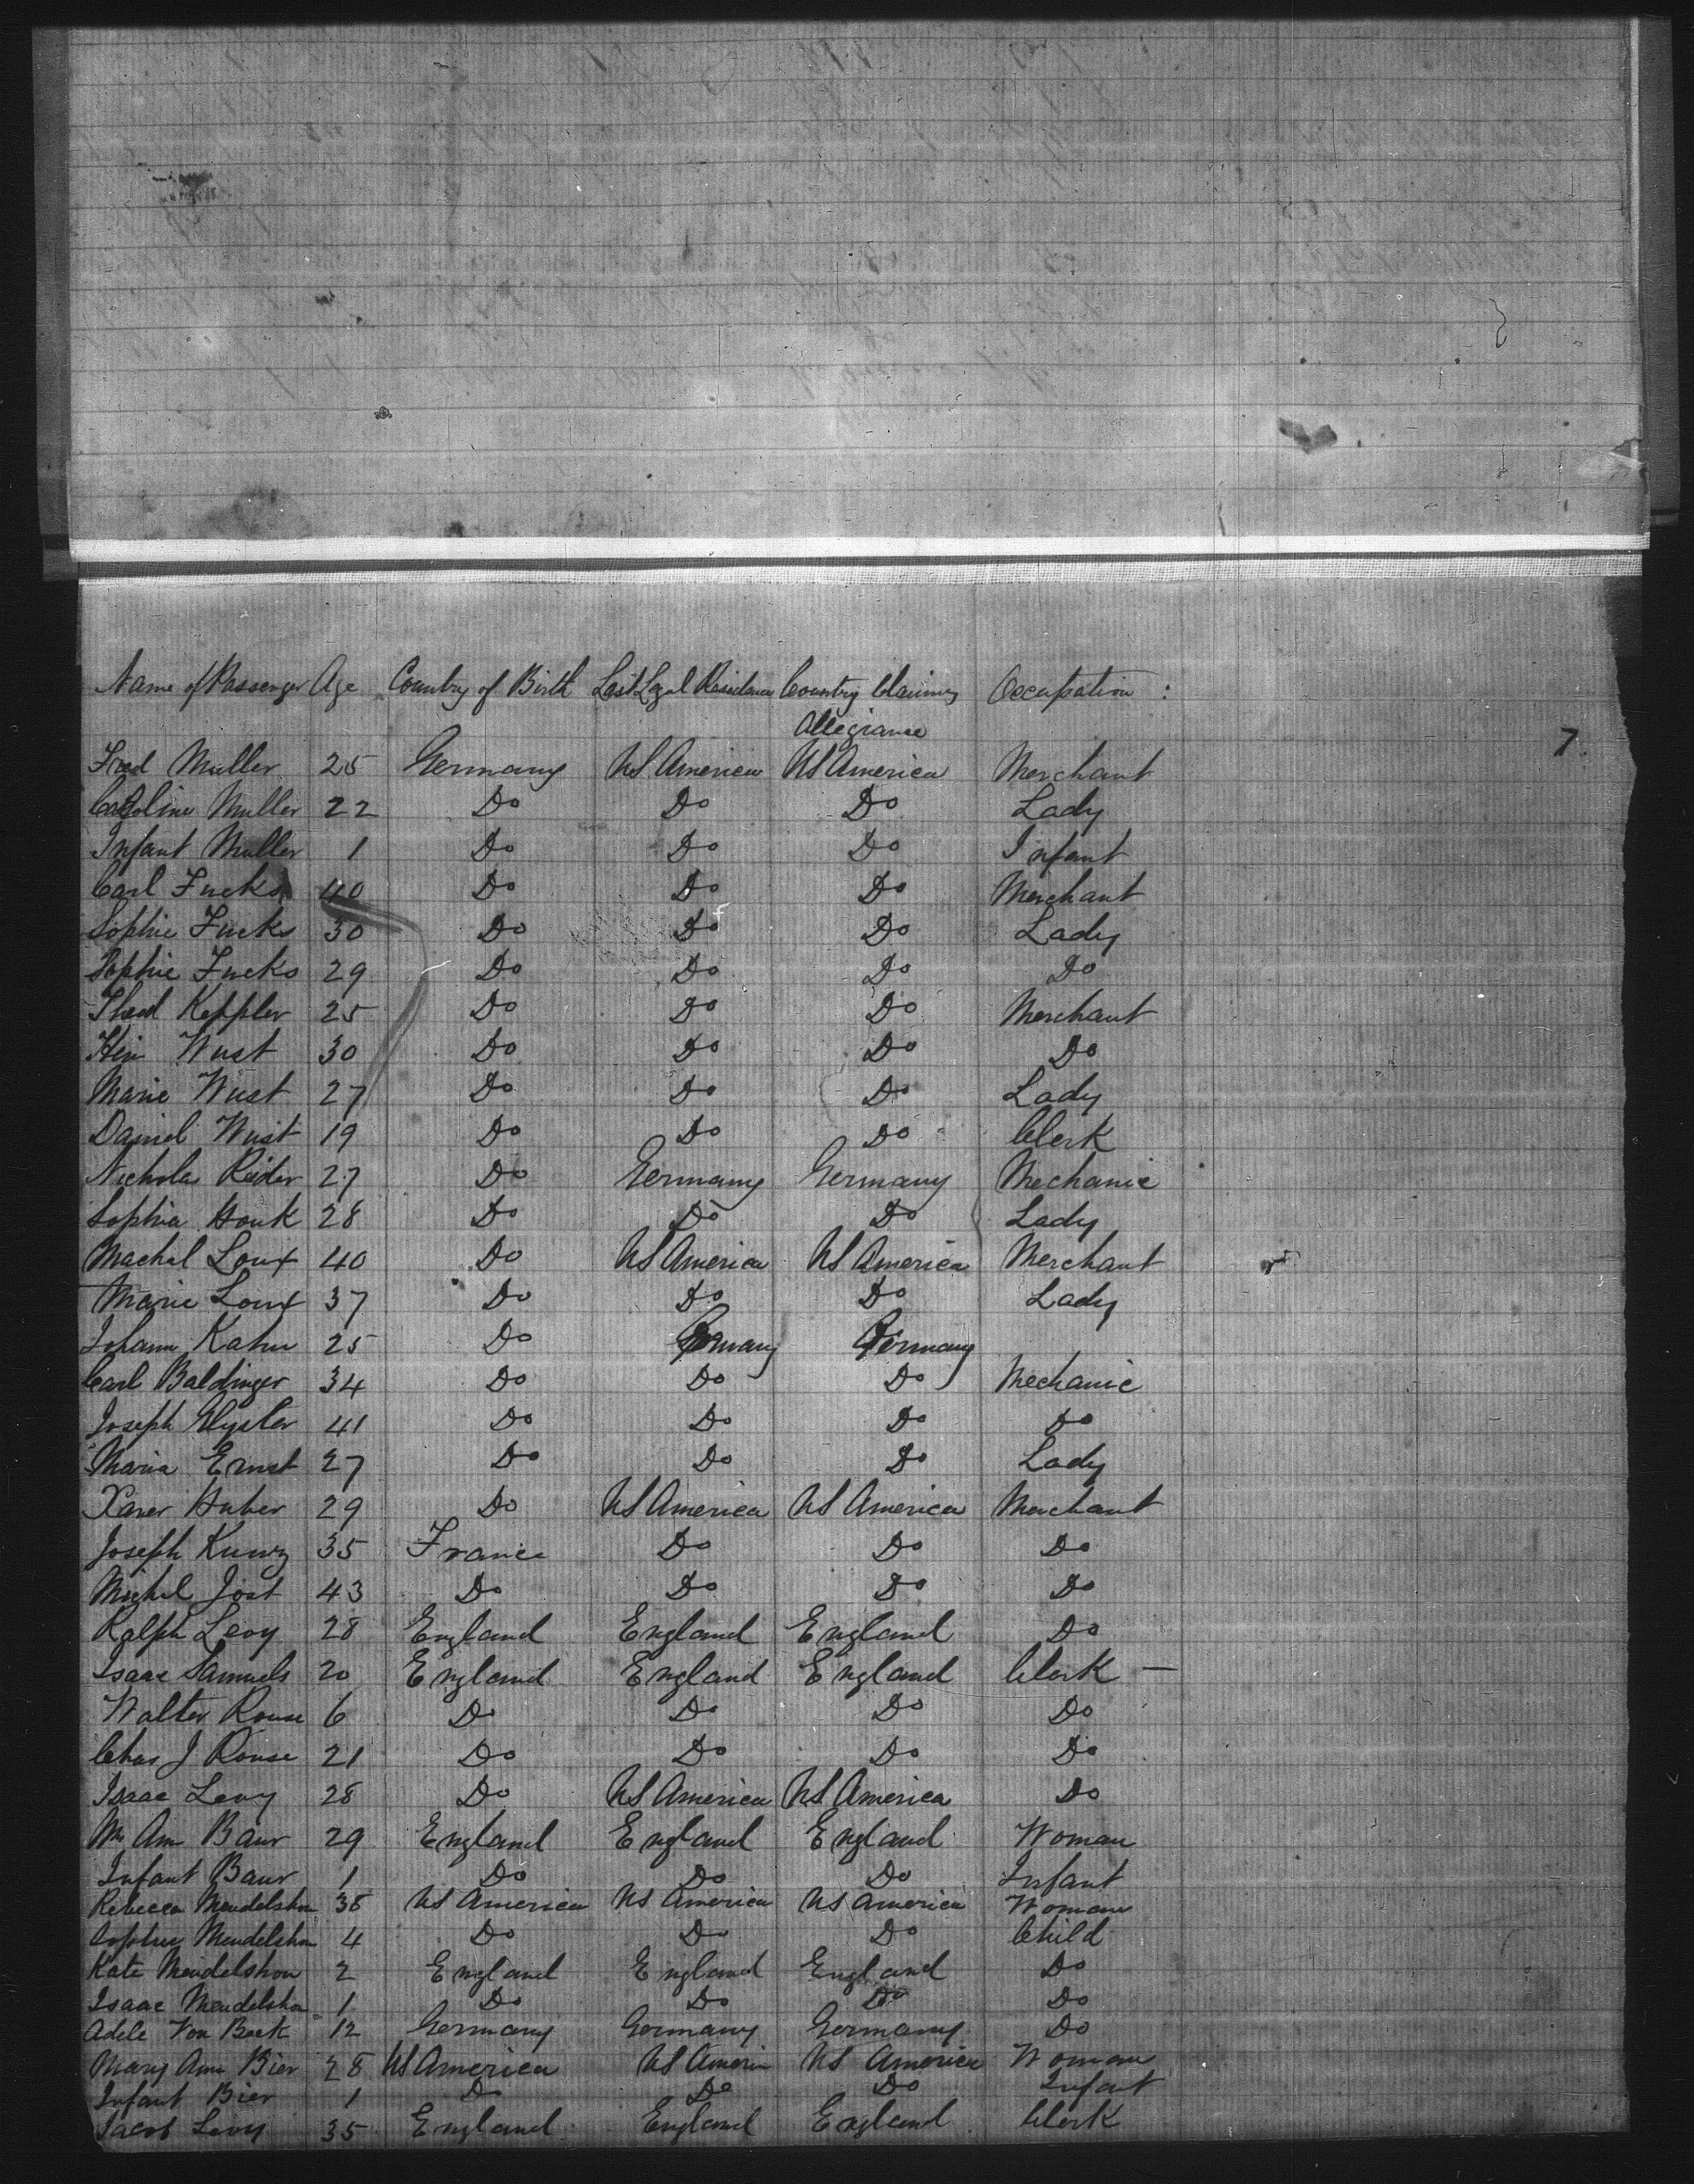 Name of Passenger Age Country of Birth Last Legal Residence Country Claiming Allegiance Occupation :
7
Fred Muller 25 Germany US America US America Merchant
Caroline Muller 22 Do Do Do Lady
Infant Muller 1 Do Do Do Infant
Carl Fucks 40 Do Do Do Merchant
Sophie Fucks 30 Do Do Do Lady
Sophie Fucks 29 Do Do Do Do
Theod Keppler 25 Do Do Do Merchant
Hein Wust 30 Do Do Do Do
Marie Wust 27 Do Do Do Lady
Daniel Wust 19 Do Do Do Clerk
Nicholas Reider 27 Do Germany Germany Mechanic
Sophia Houk 28 Do Do Do Lady
Machal Loux 40 Do US America US America Merchant
Marie Loux 37 Do Do Do Lady
Johann Kahn 25 Do Germany Germany
Carl Baldinger 34 Do Do Do Mechanic
Joseph 41 Do Do Do Do
Maria Ernst 27 Do Do Do Lady
Xaver Huber 29 Do US America US America Merchant
Joseph Kunz 35 France Do Do Do
Michel Jost 43 Do Do Do Do
Ralph Levy 28 England England England Do
Isaac Samuels 20 England England England Clerk —
Walter Rouse 6 Do Do Do Do
Chas J Rouse 21 Do Do Do Do
Isaac Levy 28 Do US America US America Do
Ann Baur 29 England England England Woman
Infant Baur 1 Do Do Do Infant
Rebecca Mendelshon 38 US America US America US America Woman
Mendelshon 4 Do Do Do Child
Kate Mendelshon 2 England England England Do
Isaac Mendelshon 1 Do Do Do Do
Adele Von Beek 12 Germany Germany Germany Do
Mary Ann Bier 28 US America US Americ US America Woman
Infant Bier 1 Do Do Do Infant
Jacob Levy 35 England England England Clerk